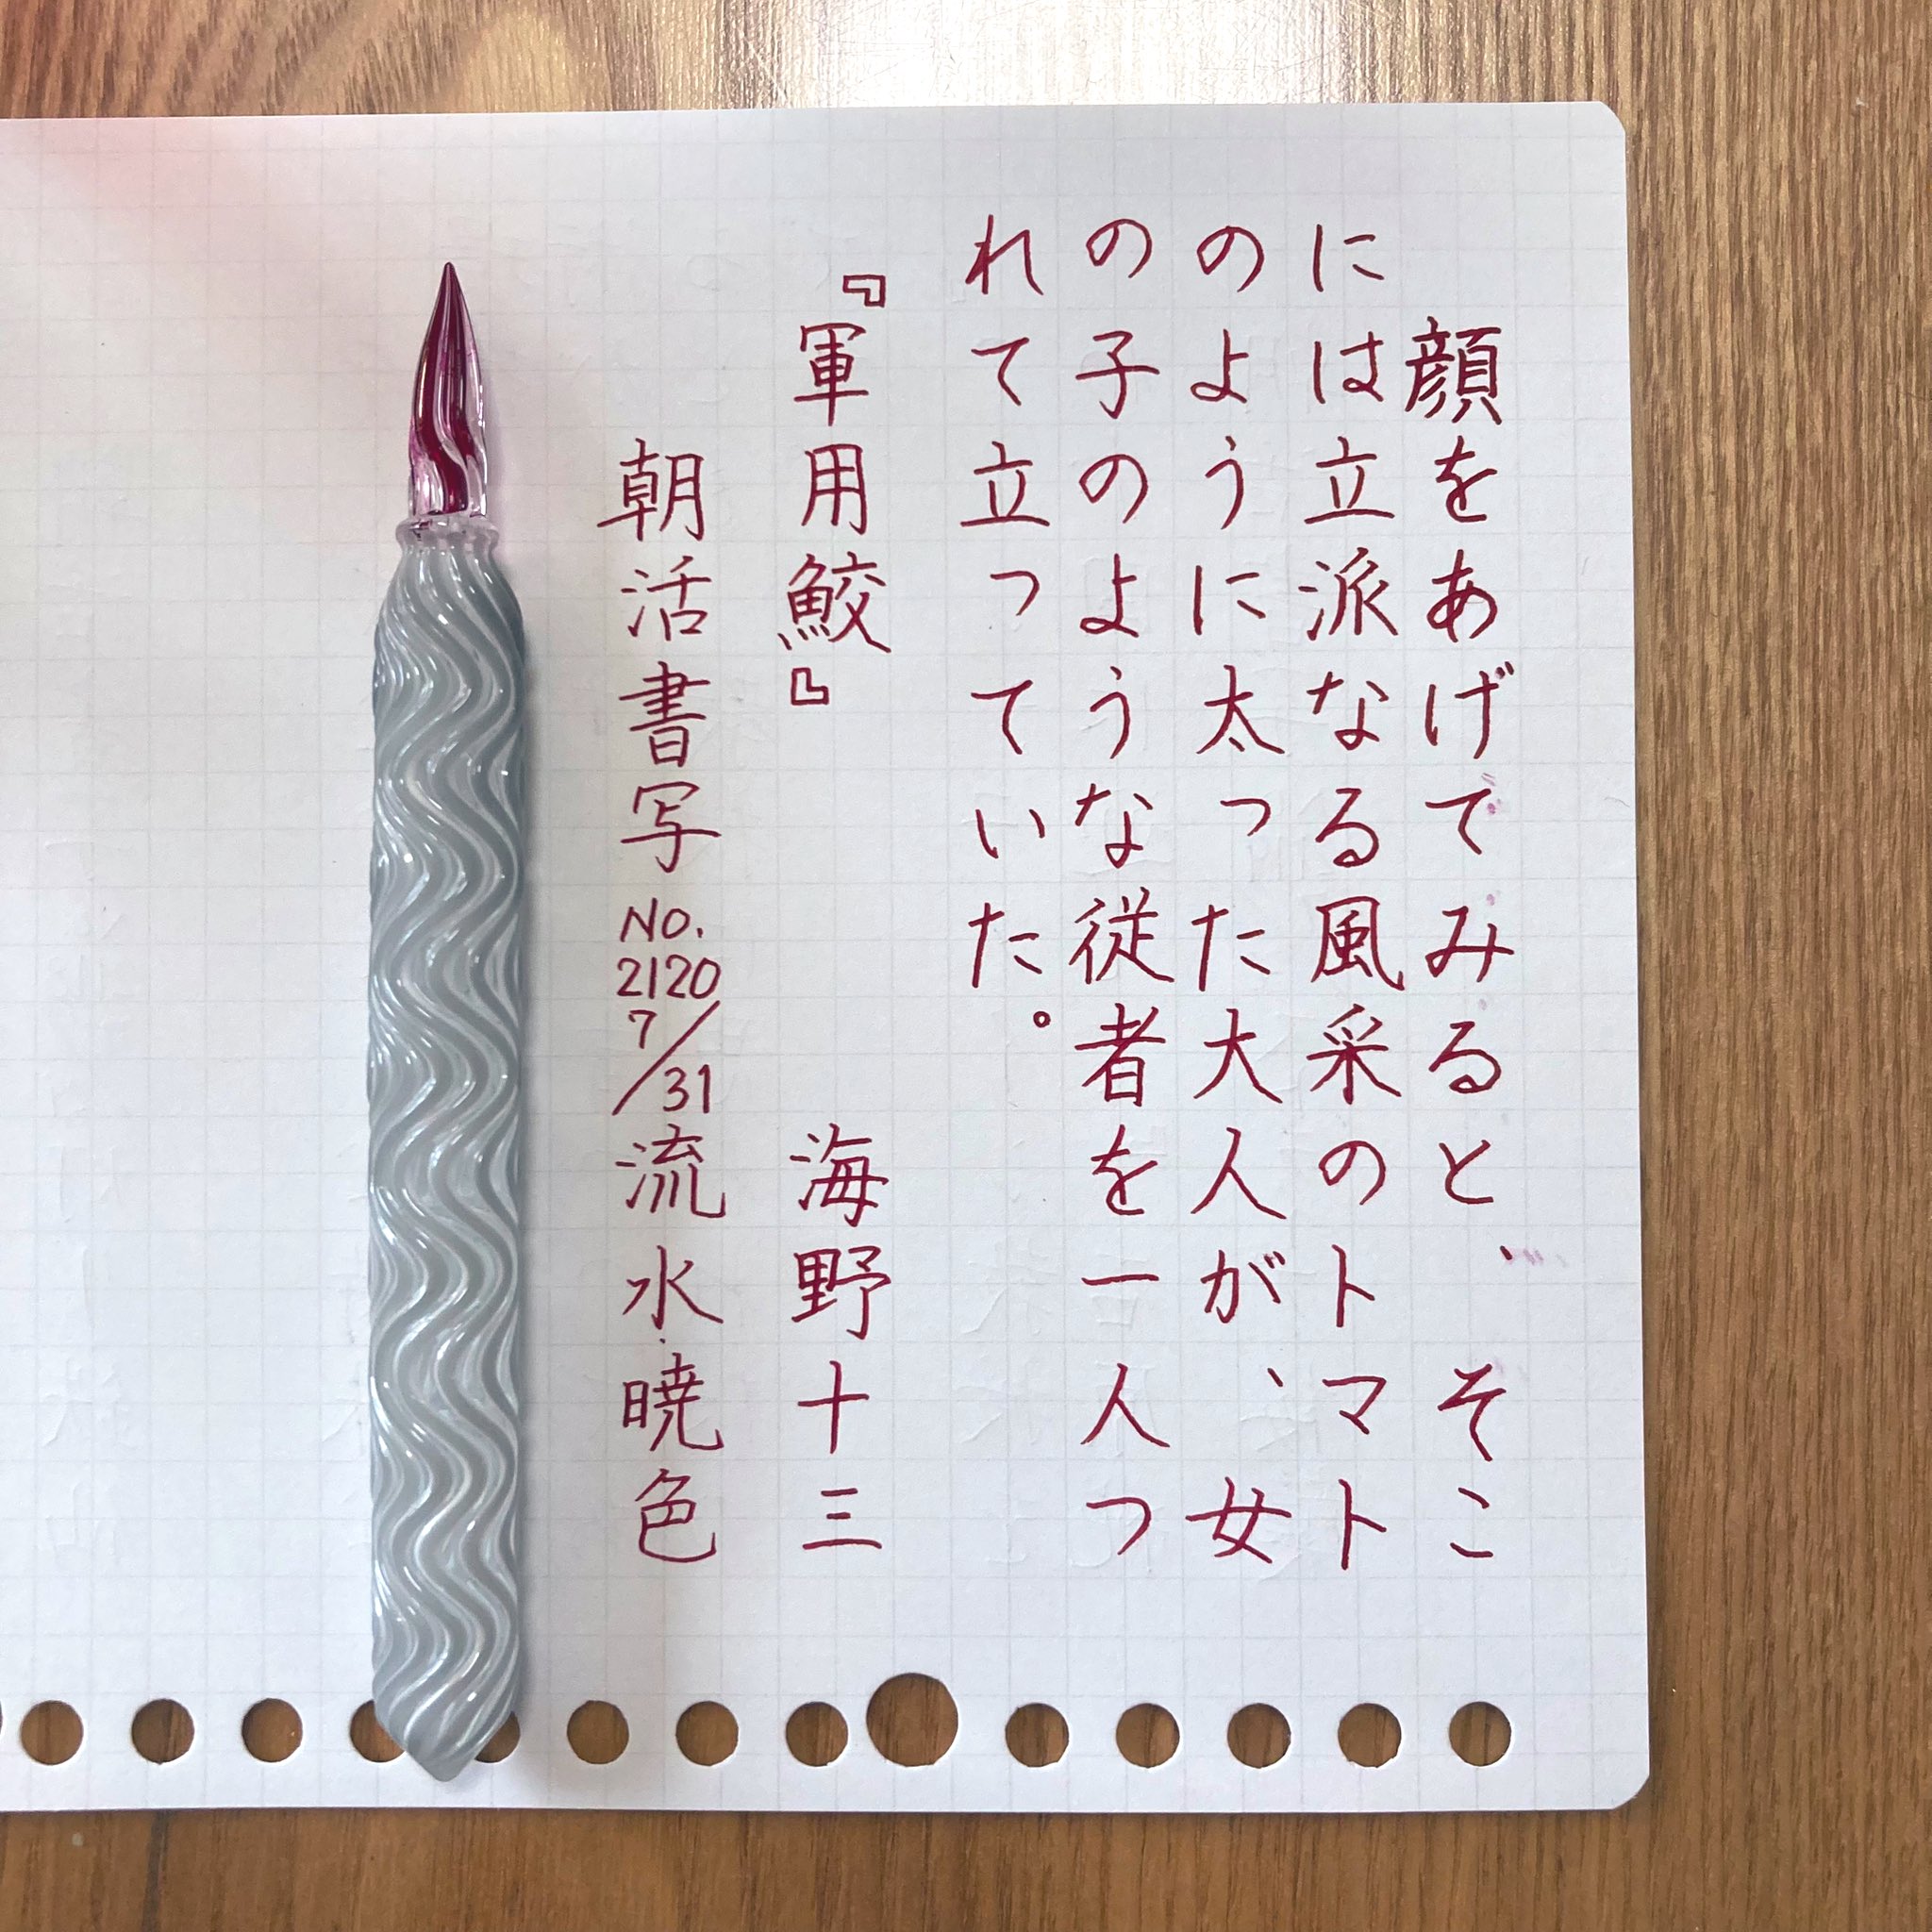 顔をあげてみると、そこ
には立派なる風采のトマト
のように太った大人が、女
の子のような従者を一人つ
れて立っていた。
『軍用鮫』 海野十三
朝活書写 No.2120 7/31 流水・暁色